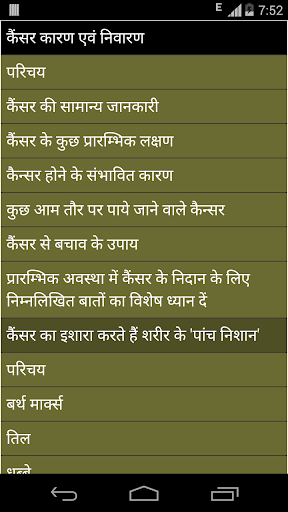 E 7:52
कैंसर कारण एवं निवारण
परिचय
कैंसर की सामान्य जानकारी
कैंसर के कुछ प्रारम्भिक लक्षण
कैन्सर होने के संभावित कारण
कुछ आम तौर पर पाये जाने वाले कैन्सर
कैंसर से बचाव के उपाय
प्रारम्भिक अवस्था में कैंसर के निदान के लिए
निम्नलिखित बातों का विशेष ध्यान दें
कैंसर का इशारा करते हैं शरीर के 'पांच निशान'
परिचय
बर्थ मार्क्स
तिल
धब्बे